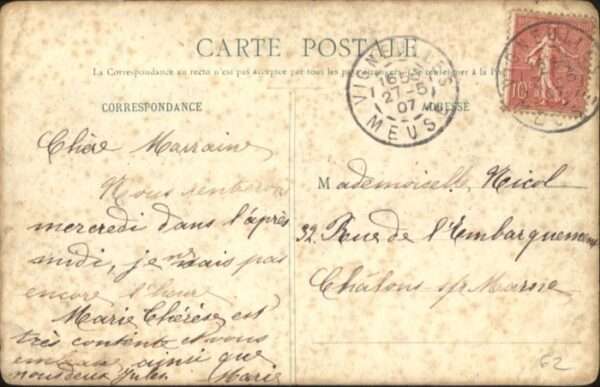 CARTE POSTALE
La Correspondance au recto n'est pas acceptée par tous les pays étrangers. Se renseigner à la
CORRESPONDANCE
ADRESSE
VIGNEULLES
16 55
27-5
07
MEUSE
10
Chère Marraine
Nous
mercredi dans l'après
midi, je ne sais pas
encore l'heure
Marie Thérèse est
très contente et vous
embrasse ainsi que
nous deux Jules. Marie
Mademoiselle Nicol
32 Rue de l'Embarquement
Châlons s/r Marne
62